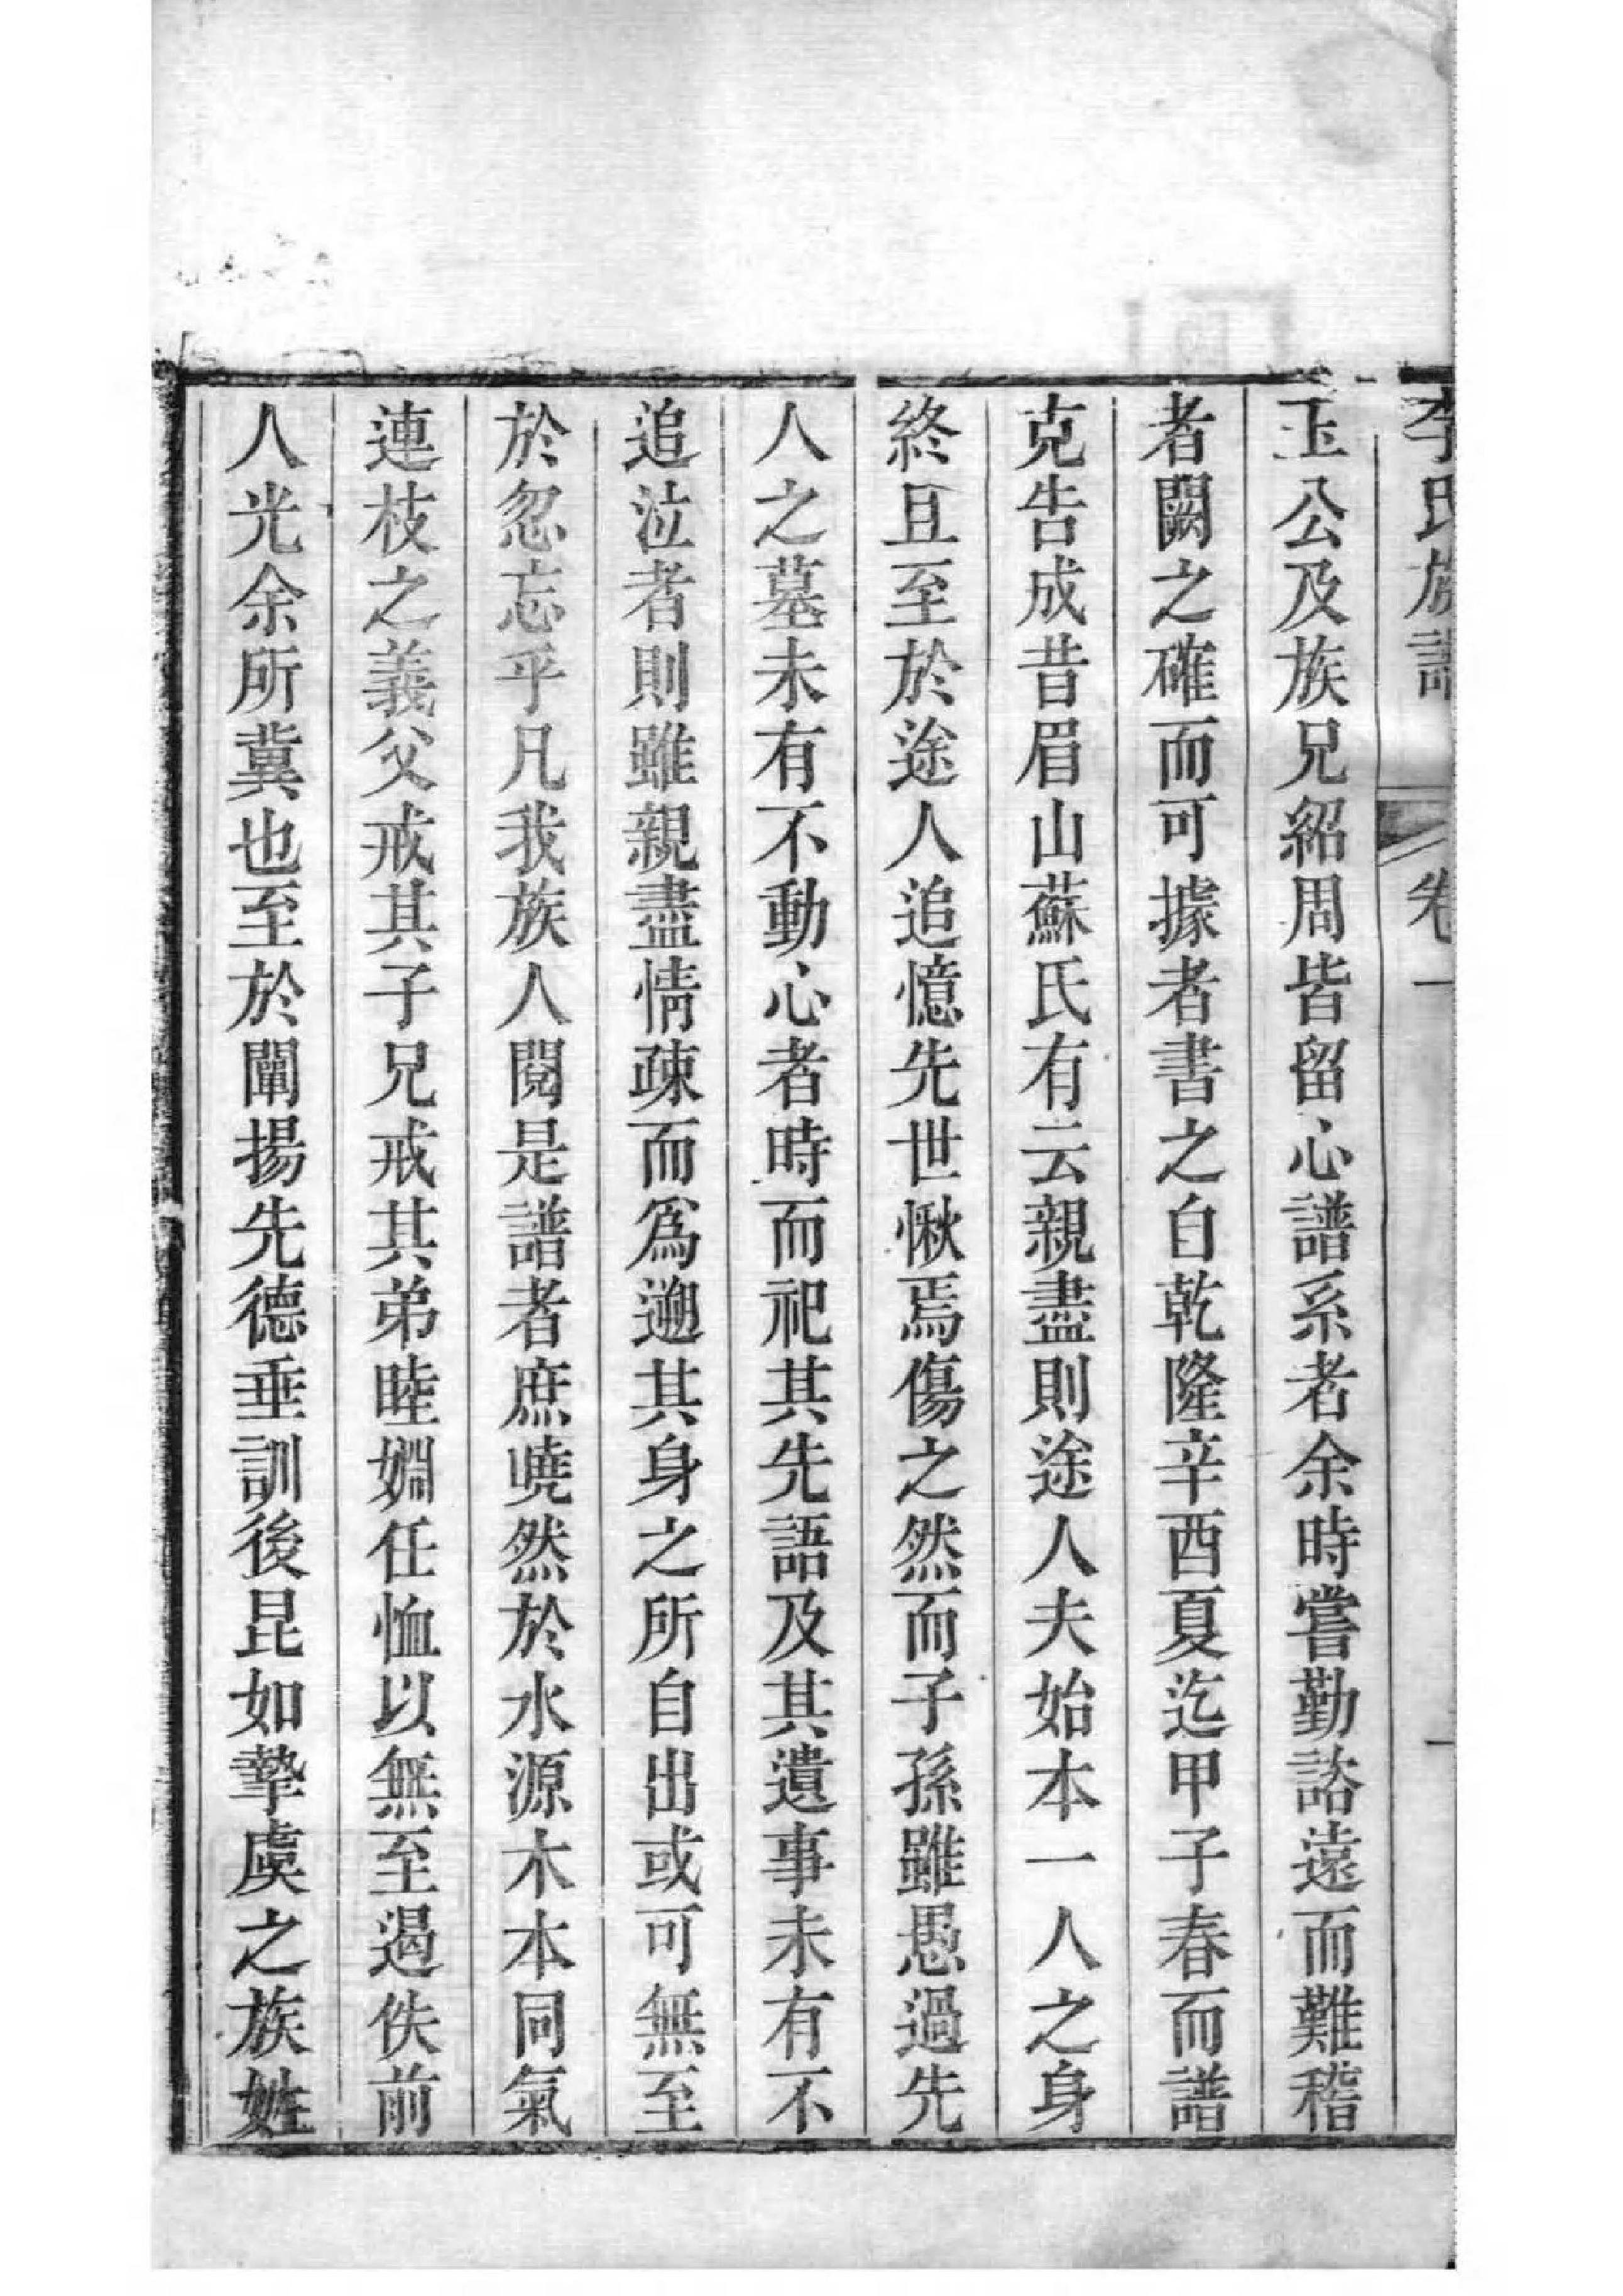 李氏族譜 卷一 一
玉公及族兄紹周皆留心譜系者余時嘗勤諮遠而難稽
者闕之確而可據者書之自乾隆辛酉夏迄甲子春而譜
克告成昔眉山蘇氏有云親盡則途人夫始本一人之身
終且至於途人追憶先世愀焉傷之然而子孫雖愚過先
人之墓未有不動心者時而祀其先語及其遺事未有不
追泣者則雖親盡情疎而爲遡其身之所自出或可無至
於忽忘乎凡我族人閱是譜者庶曉然於水源木本同氣
連枝之義父戒其子兄戒其弟睦婣任恤以無至遏佚前
人光余所冀也至於闡揚先德垂訓後昆如摯虞之族姓